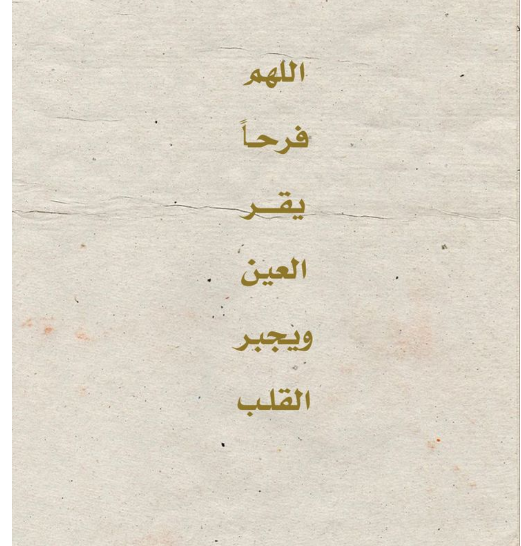 اللهم
فرحاً
يقـر
العين
ويجبر
القلب